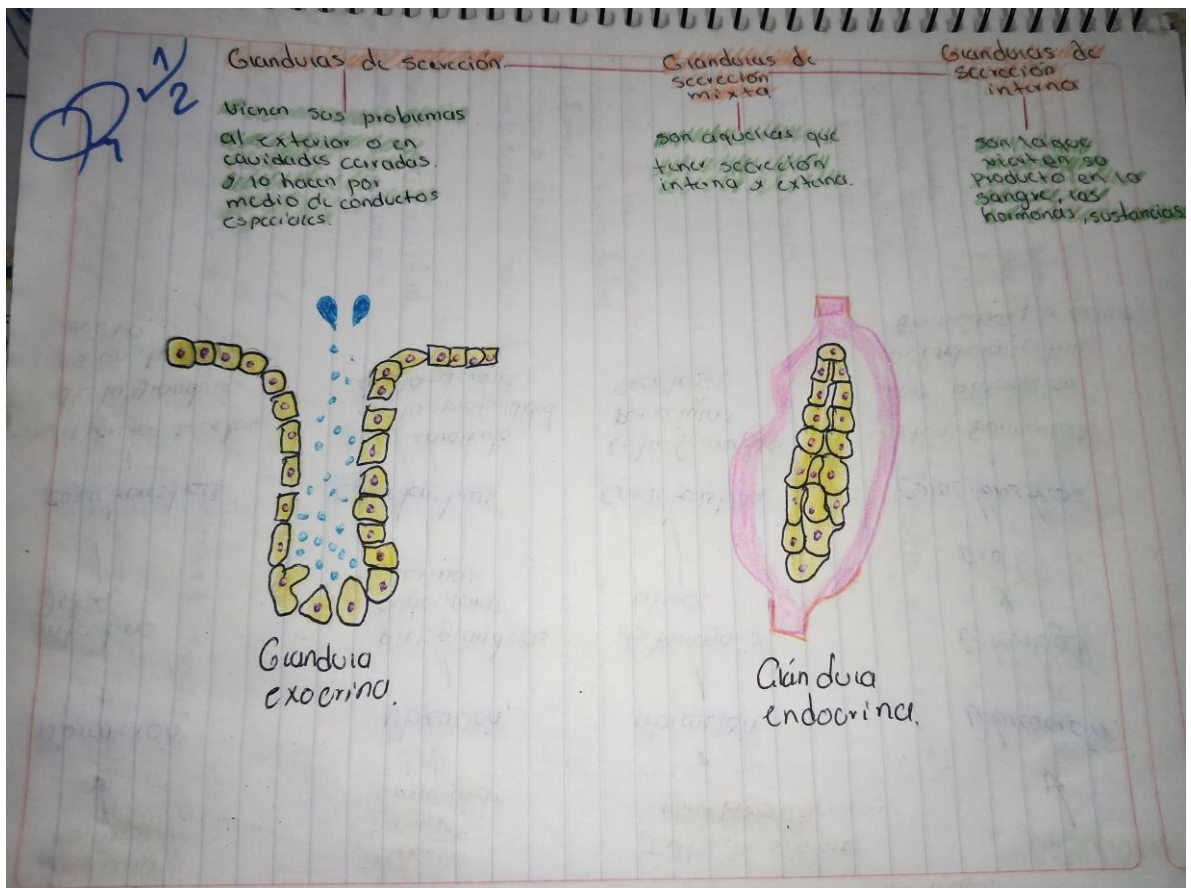 1/2
Glandulas de secreción
vienen sus problemas
al exterior o en
cavidades cerradas.
y lo hacen por
medio de conductos
especiales.
Glandulas de
secreción
mixta.
son aquellas que
tener secreción
interna x externa.
Glandulas de
secreción
interna
son la que
vierten so
producto en la
sangre, las
hormonas, sustancias
Glandula
exocrina.
Glándula
endocrina.